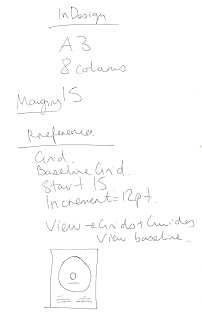 InDesign
A3
8 colums
Margins 15
Preferences
Grid.
Baseline Grid.
Start 15
Increment = 12pt.
View → Grids + Guides
View baseline..